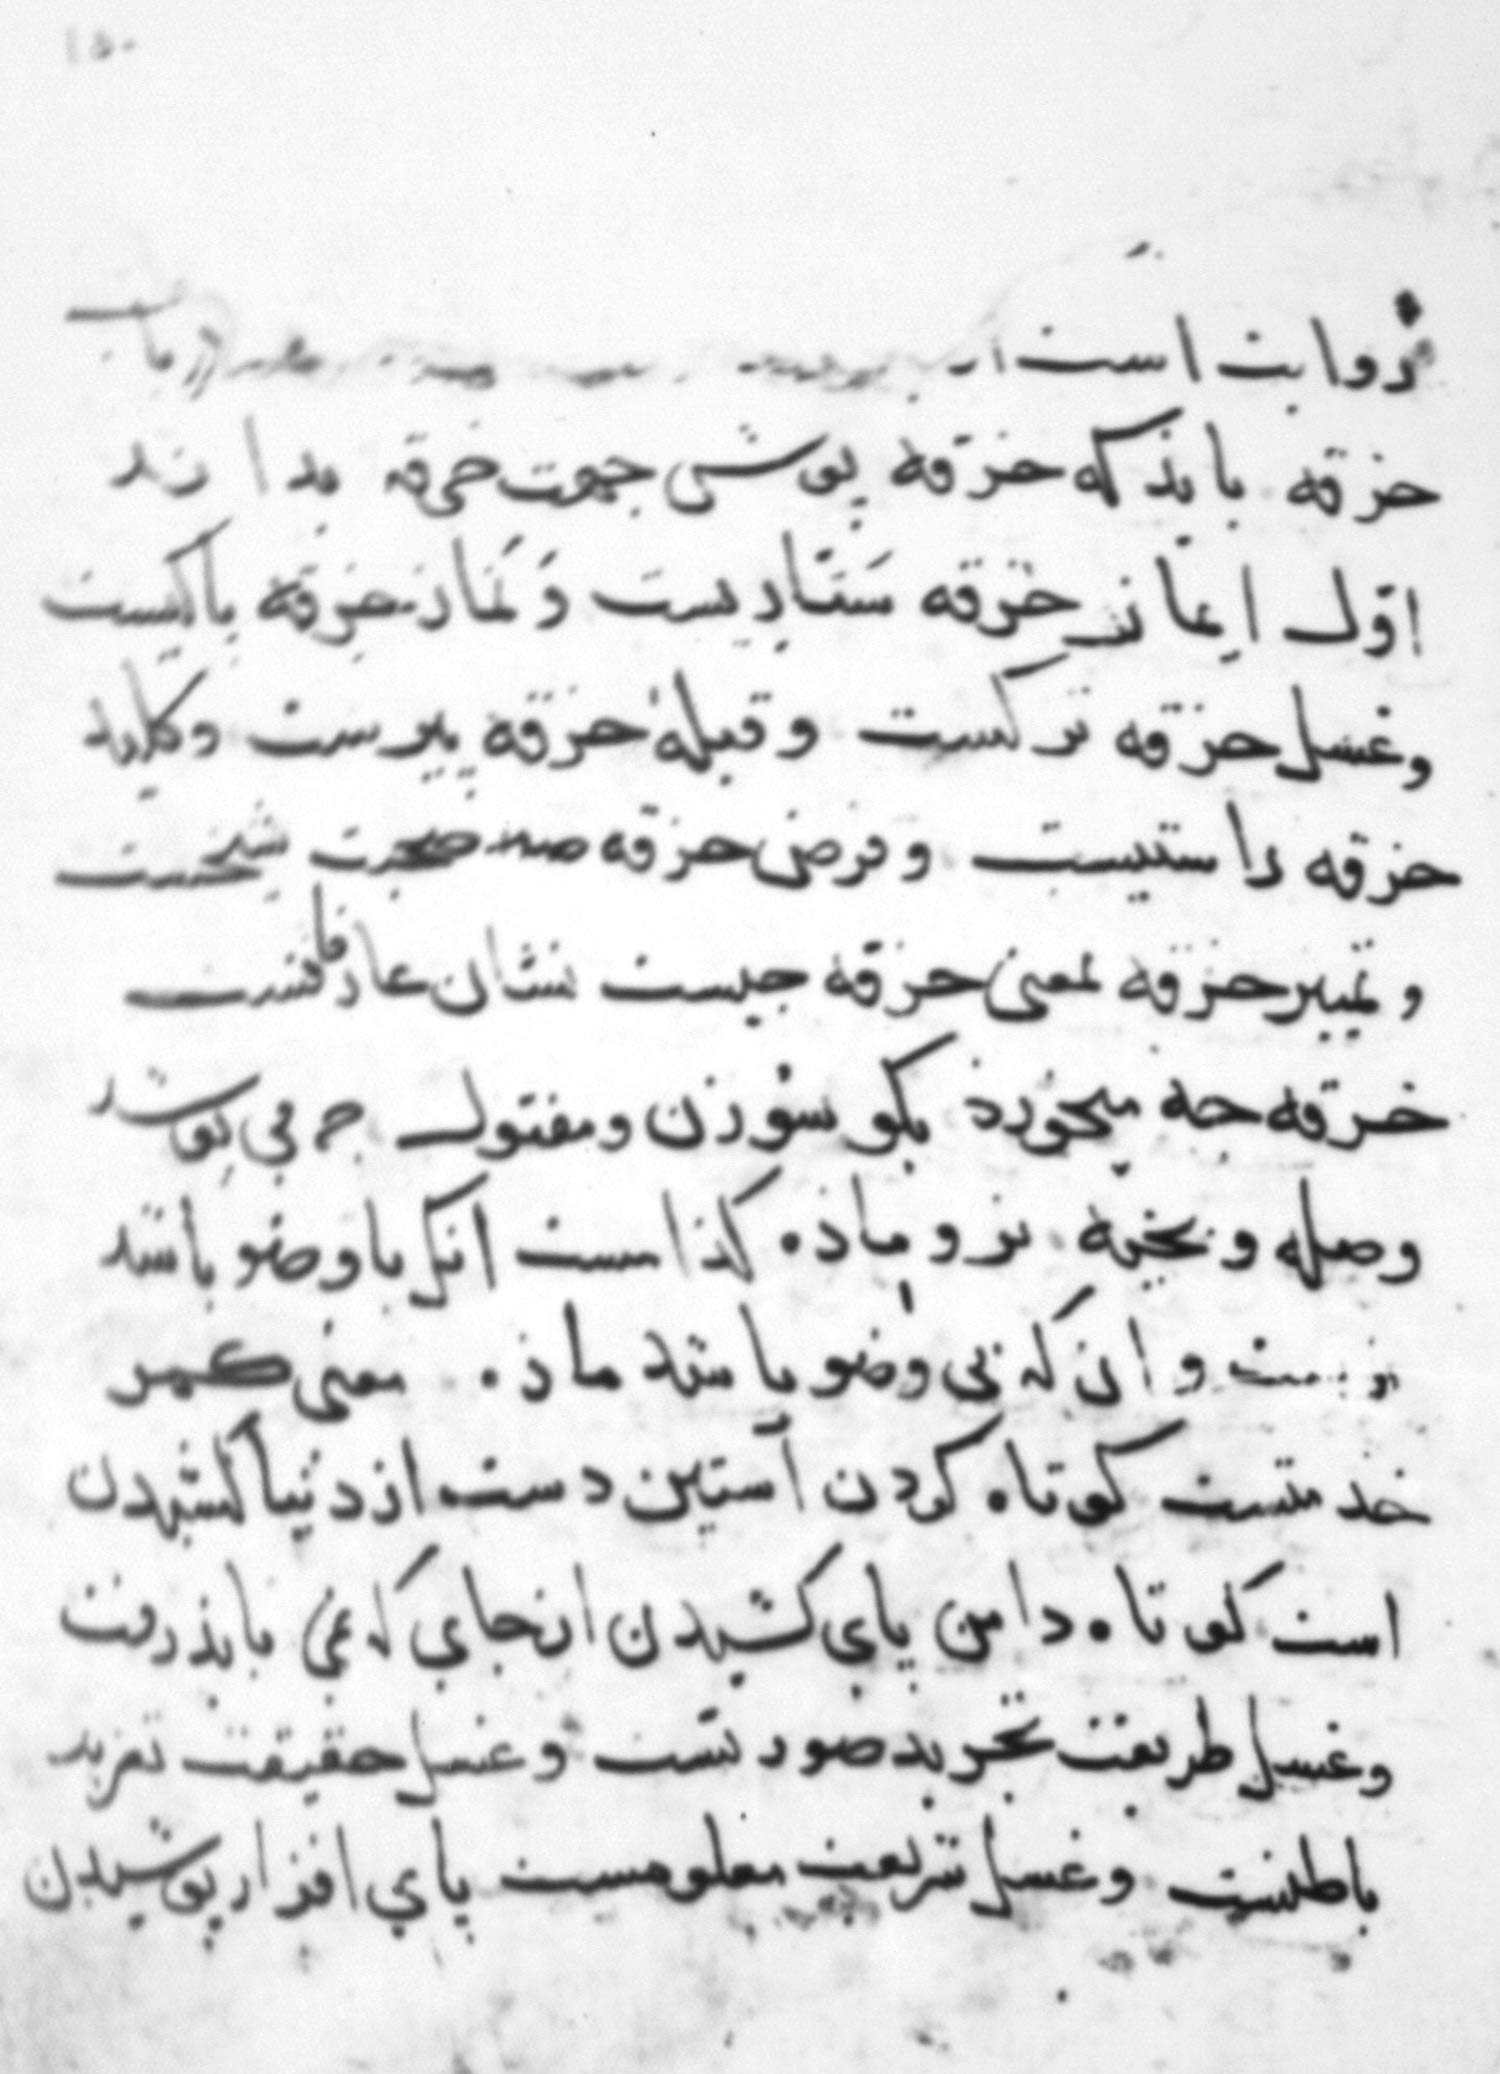 ۱۵۰
روایت است در باب
خرقه باید که خرقه پوشی جهت خرقه بداند
اوّل ایمان خرقه ستاریست و نماز خرقه پاکیست
و غسل خرقه ترکست و قبلهٔ خرقه پیرست و کلید
خرقه راستیست و فرض خرقه صحبت شیخست
و تمییز خرقه لمعنی خرقه جیست نشان عارفانست
خرقه جه میخورذ بکو سوزن و مفتول جرمی پوشد
وصله و بخیه نر و ماذه کذامست انکه با وضو باشد
نرست و ان که بی وضو باشد ماذه معنی کمر
خدمتست کوتاه کردن آستین دست از دنیا کشیدن
است کوتاه دامن پای کشیدن ازجای که نمی بایذ رفت
و غسل طریقت تجرید صورتست و غسل حقیقت تفرید
باطنست و غسل شریعت معلومست پای افزار پوشیدن